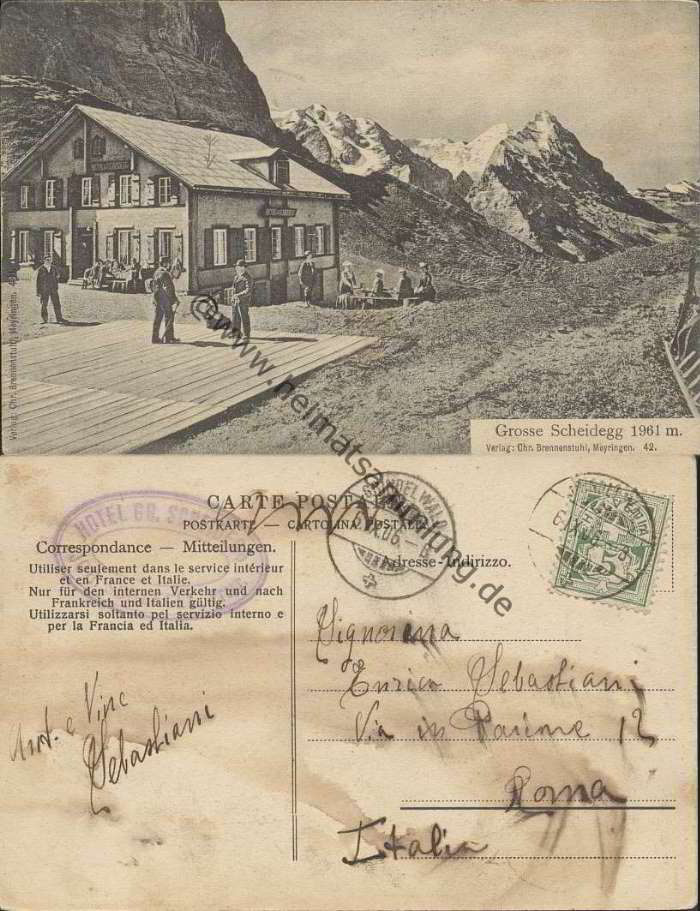 Grosse Scheidegg 1961 m.
Verlag: Chr. Brennenstuhl, Meyringen. 42.
Verlag: Chr. Brennenstuhl, Meyringen. 42.
© www.heimatsammlung.de
CARTE POSTALE
POSTKARTE — CARTOLINA POSTALE
HOTEL GR. 
Correspondance — Mitteilungen.
Utiliser seulement dans le service intérieur
et en France et Italie.
Nur für den internen Verkehr und nach
Frankreich und Italien gültig.
Utilizzarsi soltanto pel servizio interno e
per la Francia ed Italia.
GRINDELWALD
IX.06.-8
Adresse-Indirizzo.
6.IX.06.-8
5
Signorina
Enrica Sebastiani
Via in Paione 12
Roma
Italia
Ant. e Vinc
Sebastiani